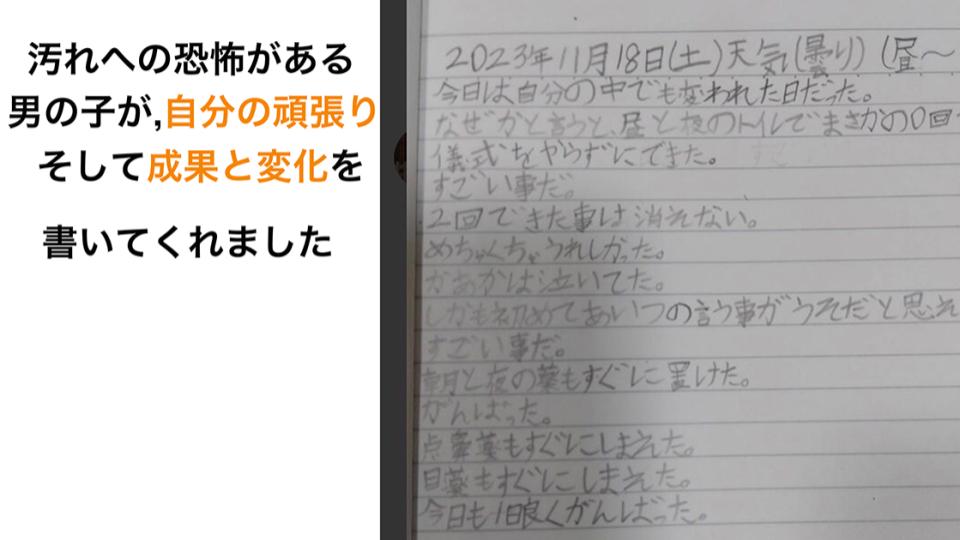 汚れへの恐怖がある
男の子が,自分の頑張り
そして成果と変化を
書いてくれました
2023年11月18日(土)天気(曇り)(昼〜
今日は自分の中でも変われた日だった。
なぜかと言うと、昼と夜のトイレでまさかの0回
儀式をやらずにできた。
すごい事だ。
2回できた事は消えない。
めちゃくちゃうれしかった。
かあかは泣いてた。
しかも初めてあいつの言う事がうそだと思え
すごい事だ。
朝と夜の薬もすぐに置けた。
がんばった。
点鼻薬もすぐにしまえた。
目薬もすぐにしまえた。
今日も1日良くがんばった。